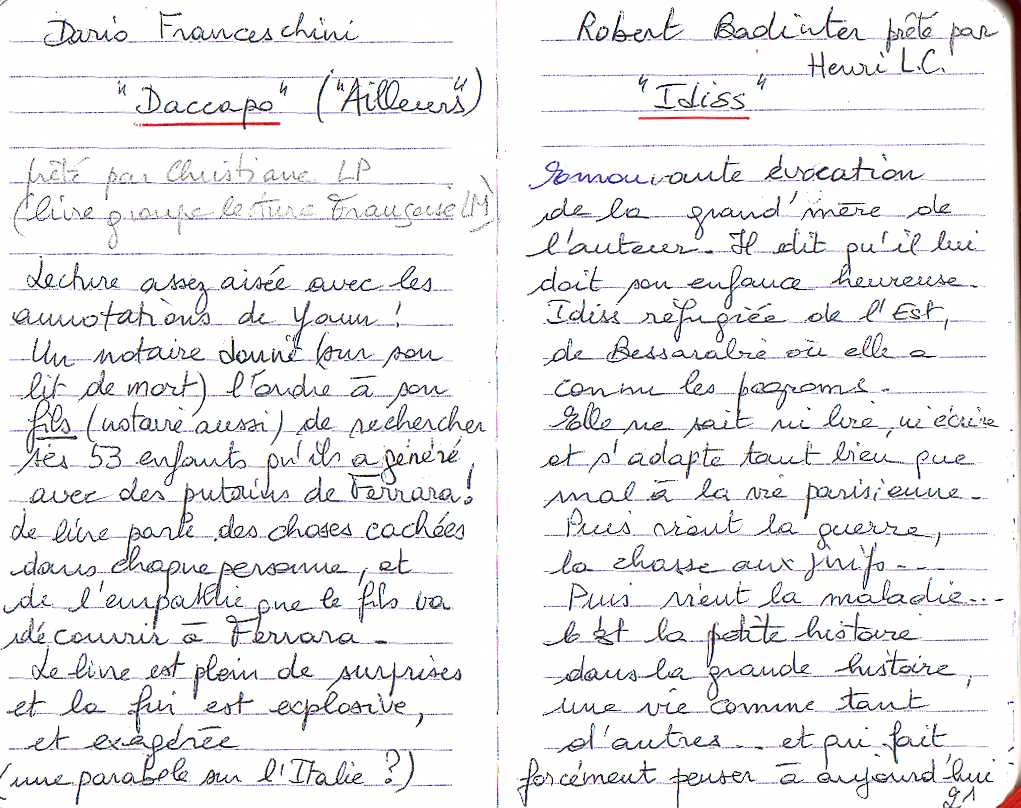 Dario Franceschini
"Daccapo" ("Ailleurs")
prêté par Christiane LP
(livre groupe lecture Françoise LM)
Lecture assez aisée avec les
annotations de Yann !
Un notaire donne (sur son
lit de mort) l'ordre à son
fils (notaire aussi) de rechercher
ses 53 enfants qu'ils a généré
avec des putains de Ferrara !
Le livre parle des choses cachées
dans chaque personne, et
de l'empathie que le fils va
découvrir à Ferrara.
Le livre est plein de surprises
et la fin est explosive,
et exagérée
(une parabole sur l'Italie ?)
Robert Badinter prêté par
Henri L.C.
"Idiss"
Emouvante évocation
de la grand'mère de
l'auteur. Il dit qu'il lui
doit son enfance heureuse.
Idiss réfugiée de l'Est,
de Bessarabie où elle a
connu les pogroms.
Elle ne sait ni lire, ni écrire
et s'adapte tant bien que
mal à la vie parisienne.
Puis vient la guerre,
la chasse aux juifs...
Puis vient la maladie...
C'est la petite histoire
dans la grande histoire,
une vie comme tant
d'autres... et qui fait
forcément penser à aujourd'hui
21